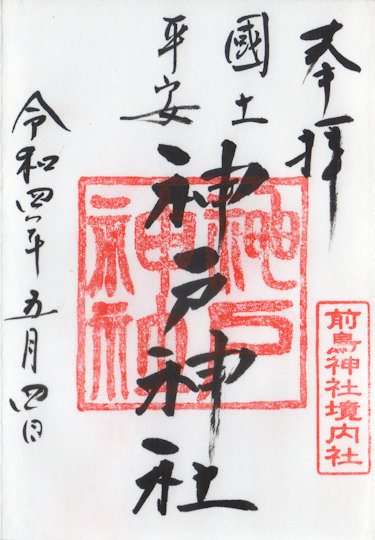 奉拝
國土
平安
神戸神社
令和四年五月四日
神戸
神社
前鳥神社境内社